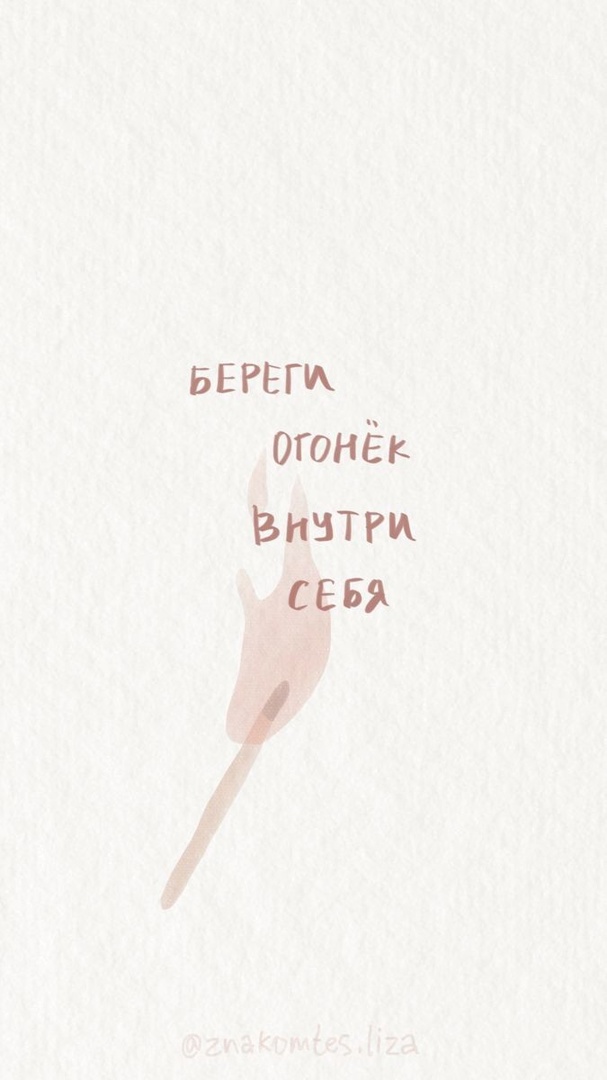 БЕРЕГИ
ОГОНЁК
ВНУТРИ
СЕБЯ
@znakomtes.liza